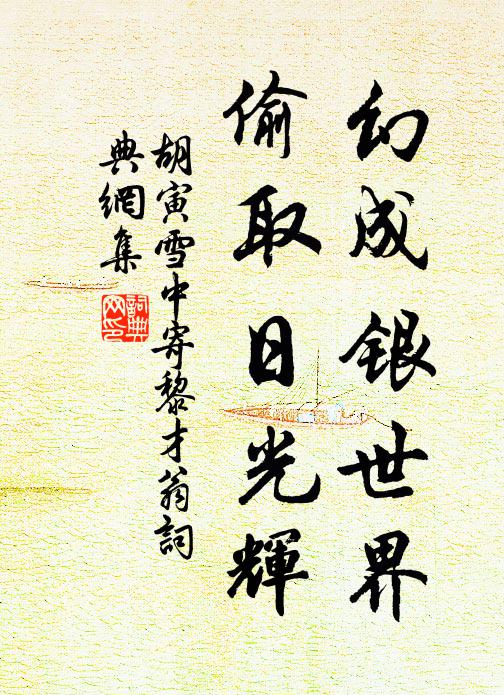 幻成銀世界
偷取日光輝
胡寅雪中寄黎才翁詞
典網集
詞典
网印